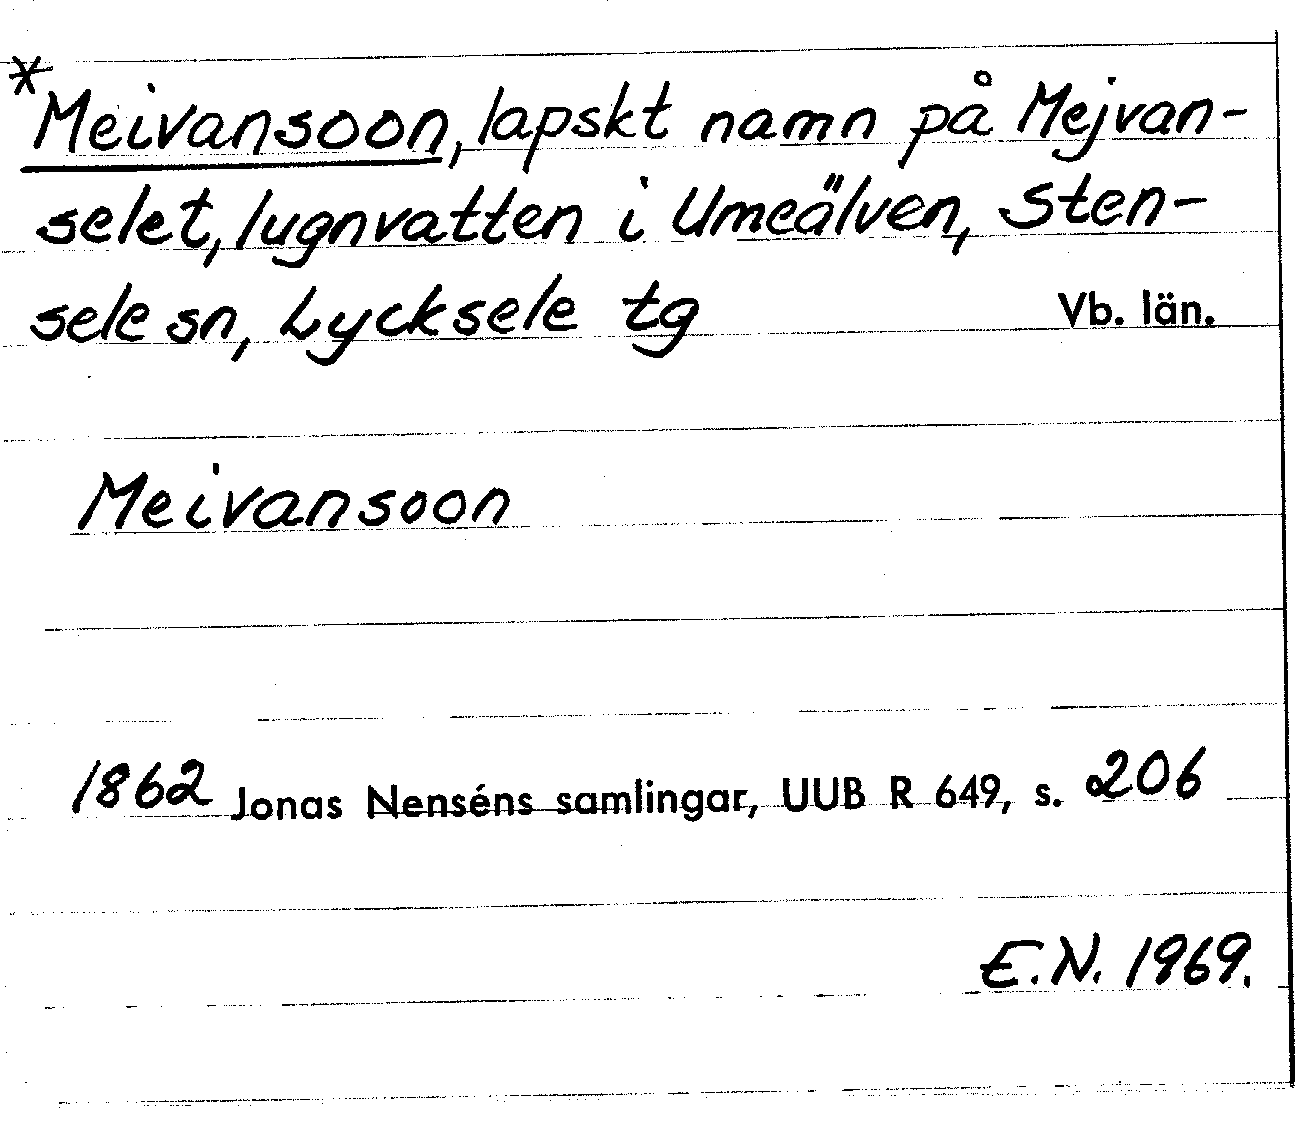 *Meivansoon, lapskt namn på Mejvan-
selet, lugnvatten i Umeälven, Sten-
sele sn, Lycksele tg Vb. län.
Meivansoon
1862 Jonas Nenséns samlingar, UUB R 649, s. 206
E.N. 1969.